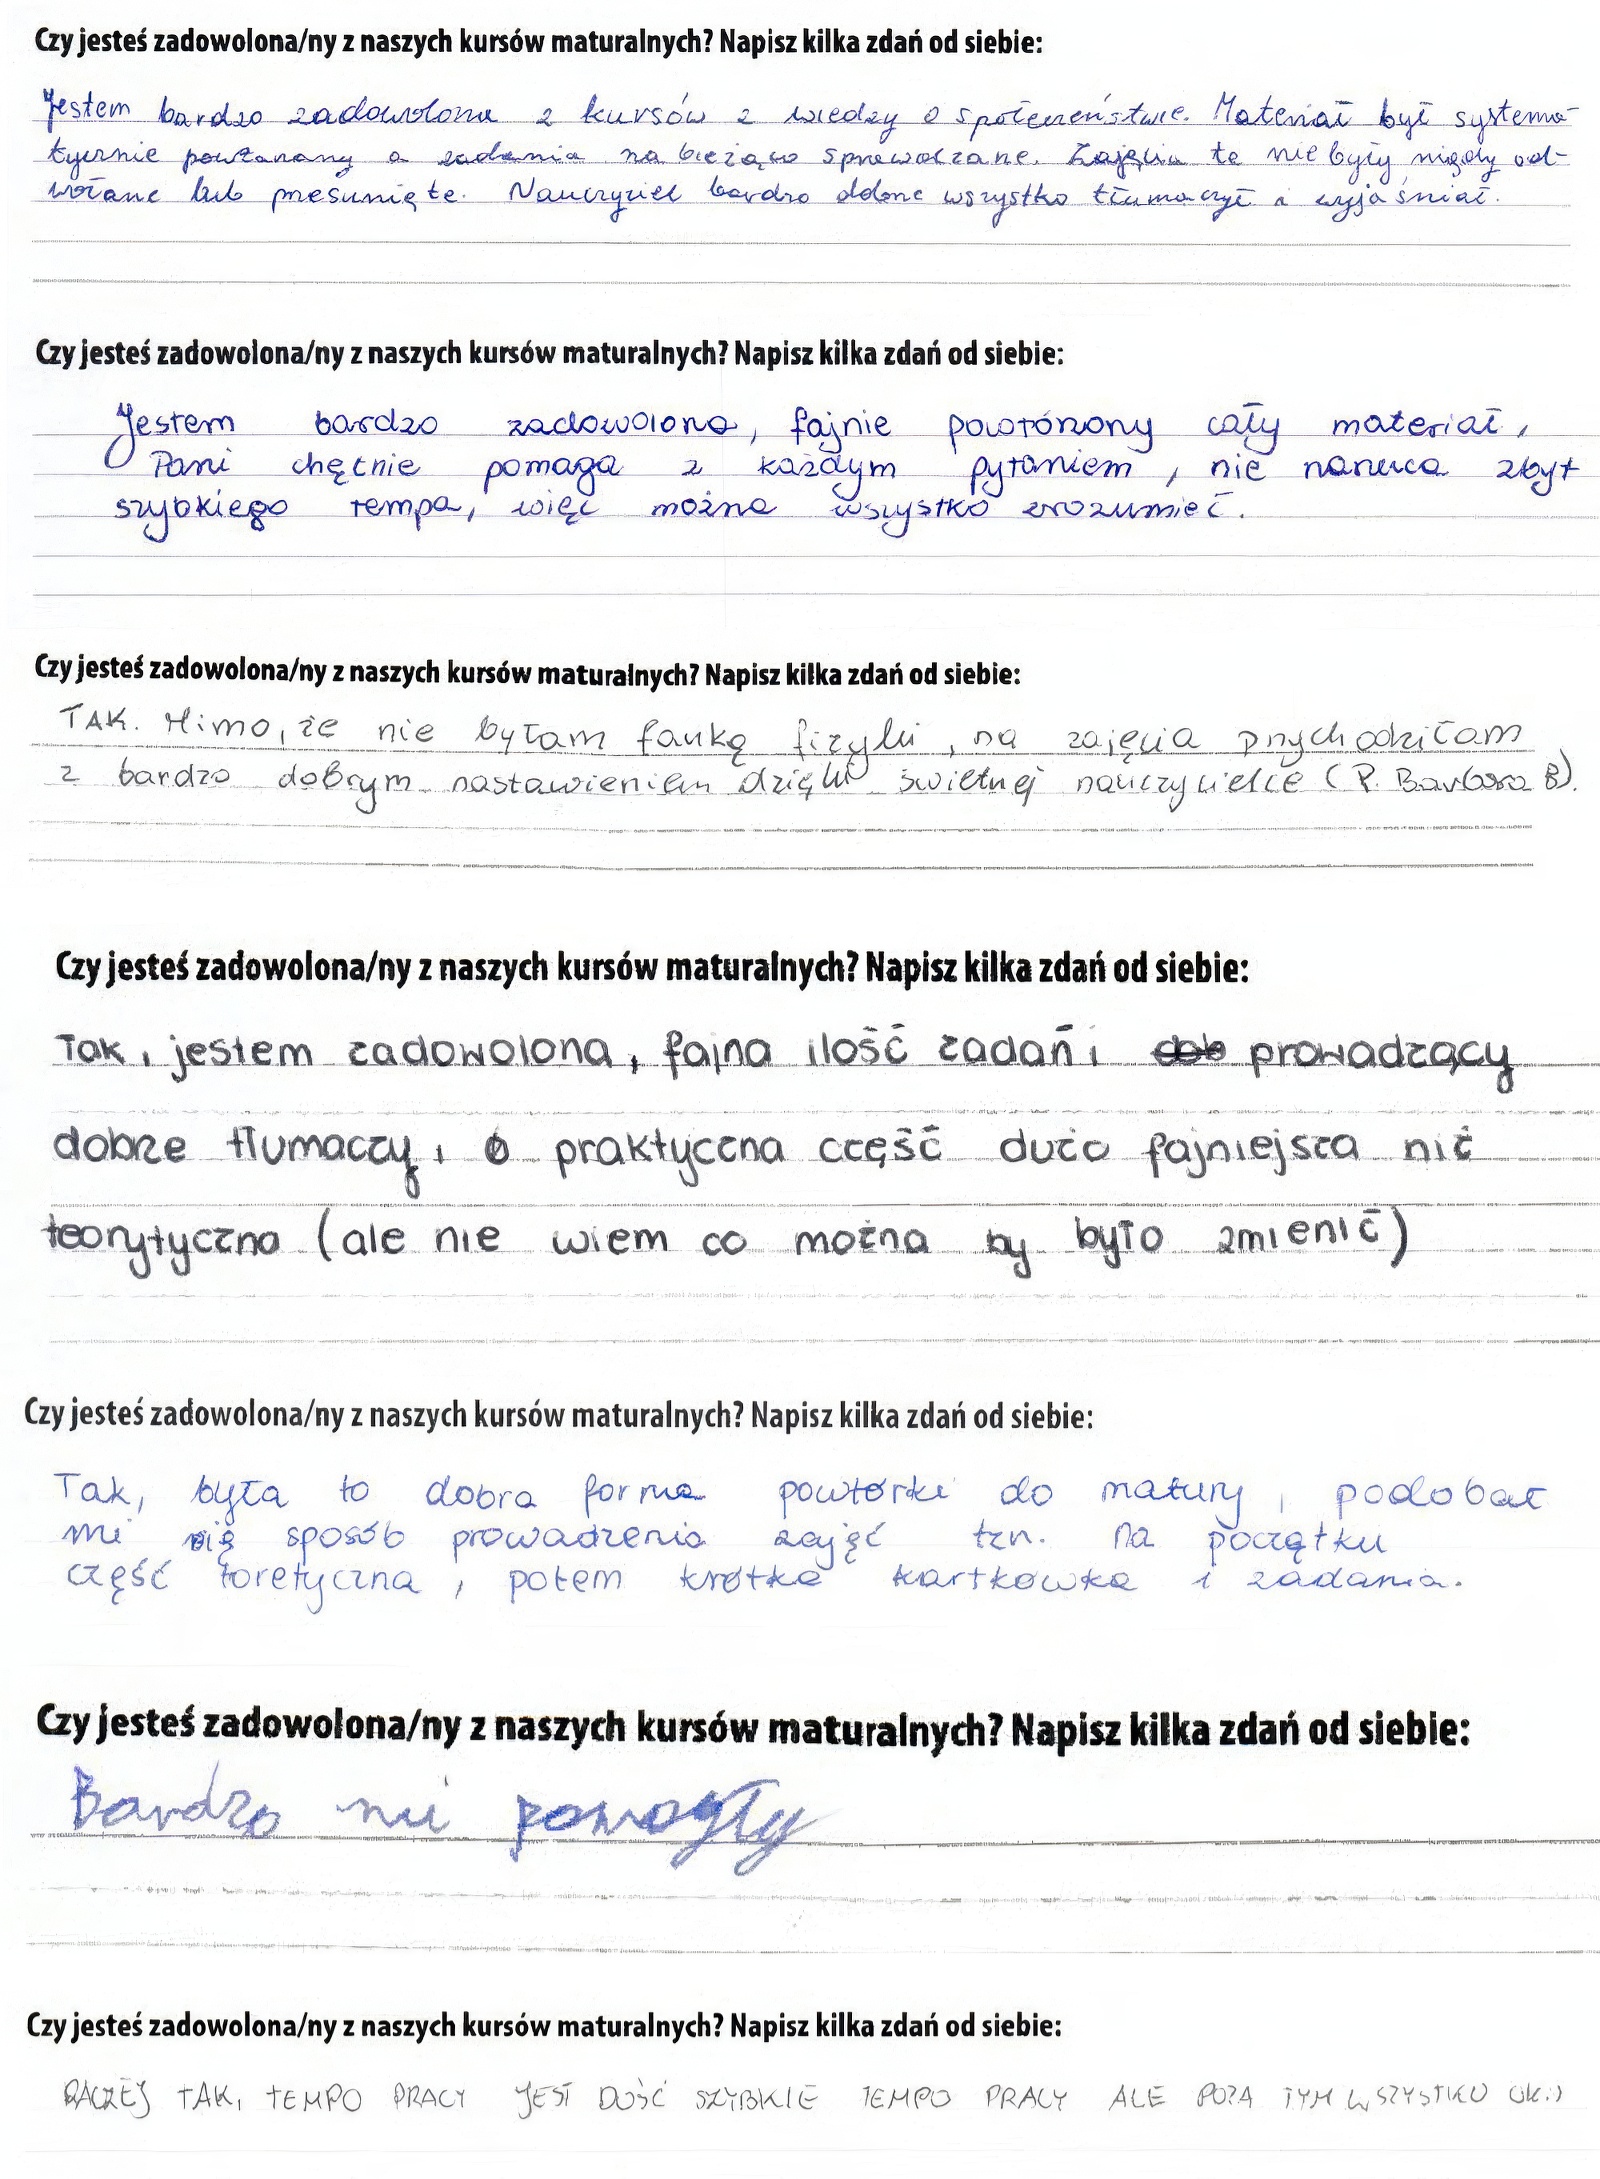 Czy jesteś zadowolona/ny z naszych kursów maturalnych? Napisz kilka zdań od siebie:
Jestem bardzo zadowolona z kursów z wiedzy o społeczeństwie. Materiał był systema-
tycznie powtarzany a zadania na bieżąco sprawdzane. Zajęcia te nie były nigdy od-
wołane lub przesunięte. Nauczyciel bardzo dobrze wszystko tłumaczył i wyjaśniał.
Czy jesteś zadowolona/ny z naszych kursów maturalnych? Napisz kilka zdań od siebie:
Jestem bardzo zadowolona, fajnie powtórzony cały materiał,
Pani chętnie pomaga z każdym pytaniem, nie narzuca zbyt
szybkiego tempa, więc można wszystko zrozumieć.
Czy jesteś zadowolona/ny z naszych kursów maturalnych? Napisz kilka zdań od siebie:
TAK. Mimo, że nie byłam fanką fizyki, na zajęcia przychodziłam
z bardzo dobrym nastawieniem dzięki świetnej nauczycielce (P. Barbara B).
Czy jesteś zadowolona/ny z naszych kursów maturalnych? Napisz kilka zdań od siebie:
Tak, jestem zadowolona, fajna ilość zadań i prowadzący
dobrze tłumaczy, praktyczna część dużo fajniejsza niż
teorytyczna (ale nie wiem co można by było zmienić)
Czy jesteś zadowolona/ny z naszych kursów maturalnych? Napisz kilka zdań od siebie:
Tak, była to dobra forma powtórki do matury, podobał
mi się sposób prowadzenia zajęć tzn. na początku
część toretyczna, potem krótka kartkówka i zadania.
Czy jesteś zadowolona/ny z naszych kursów maturalnych? Napisz kilka zdań od siebie:
Bardzo mi pomogły
Czy jesteś zadowolona/ny z naszych kursów maturalnych? Napisz kilka zdań od siebie:
RACZEJ TAK, TEMPO PRACY JEST DOŚĆ SZYBKIE TEMPO PRACY ALE POZA TYM WSZYSTKO OK:)